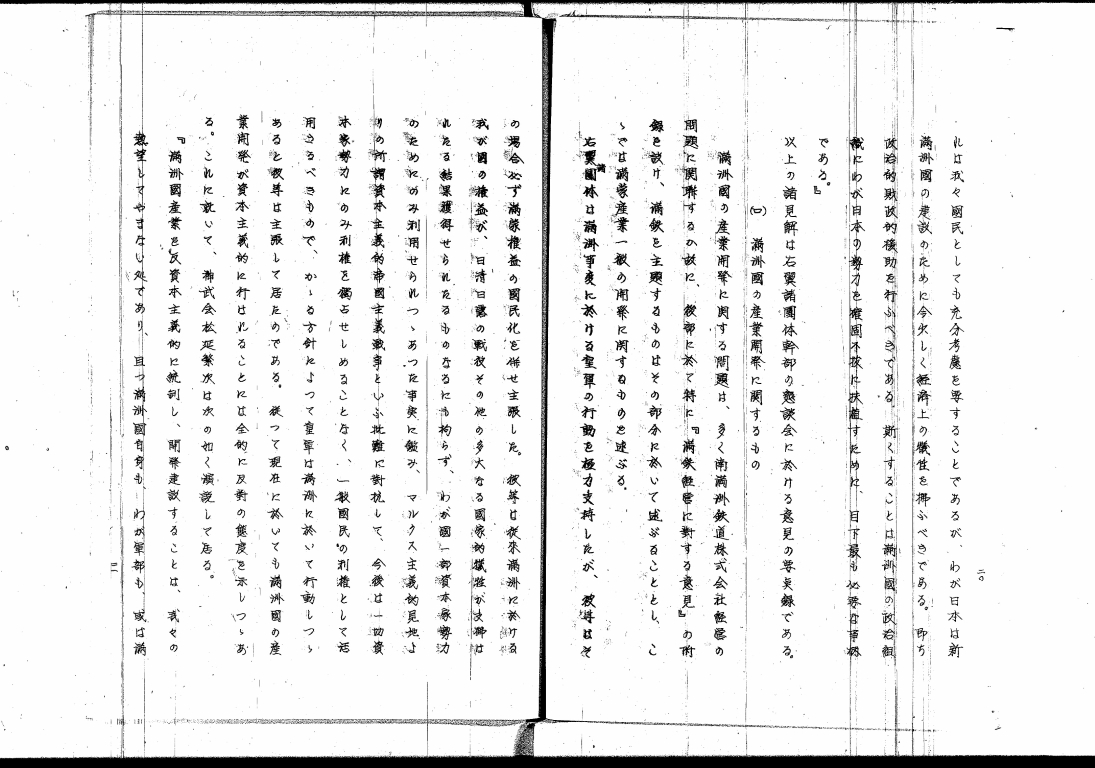 ルは我々國民としても充分考慮を要することであるが、わが日本は新
満洲國の建設のために今少しく経済上の犠牲を拂ふべきである。即ち
政治的財政的援助を行ふべきである 斯くすることは満洲國の政治組
織にわが日本の勢力を確固不抜に扶植すために、目下最も必要な事柄
である。』
以上の諸見解は右翼諸團体幹部の懇談会に於ける意見の要点録である。
(二) 満洲國の産業開発に関するもの
満洲國の産業開発に関する問題は、多く南満洲鉄道株式会社経営の
問題に関聯するが故に、後部に於て特に『満鉄経営に対する意見』の附
録を設け、満鉄を主題するものはその部分に於いて述ぶることとし、こ
ゝでは満蒙産業一般の開発に関するものを述ぶる。
右翼諸團体は満洲事変に於ける皇軍の行動を極力支持したが、彼等はそ
二〇
の場合必ず満蒙権益の國民化を併せ主張した。彼等は従来満洲に於ける
我が國の権益が、日清日露の戦役その他の多大なる國家的犠牲が支拂は
れたる結果獲得せられたるものなるにも拘らず、わが國一部資本家勢力
のためにのみ利用せられつゝあつた事実に鑑み、マルクス主義的見地よ
りの所謂資本主義的帝國主義戦争といふ批難に対抗して、今後は一切資
本家勢力にのみ利権を獨占せしめることなく、一般國民の利権として活
用さるべきもので、かゝる方針によつて皇軍は満洲に於いて行動しつゝ
あると彼等は主張して居たのである。従つて現在に於いても満洲國の産
業開発が資本主義的に行はれることには全的に反対の態度を示しつゝあ
る。これに就いて、神武会松延繁次は次の如く演説して居る。
『満洲國産業を反資本主義的に統制し、開発建設することは、我々の
熱望してやまない処であり、且つ満洲國自身も、わが軍部も、或は満
二一